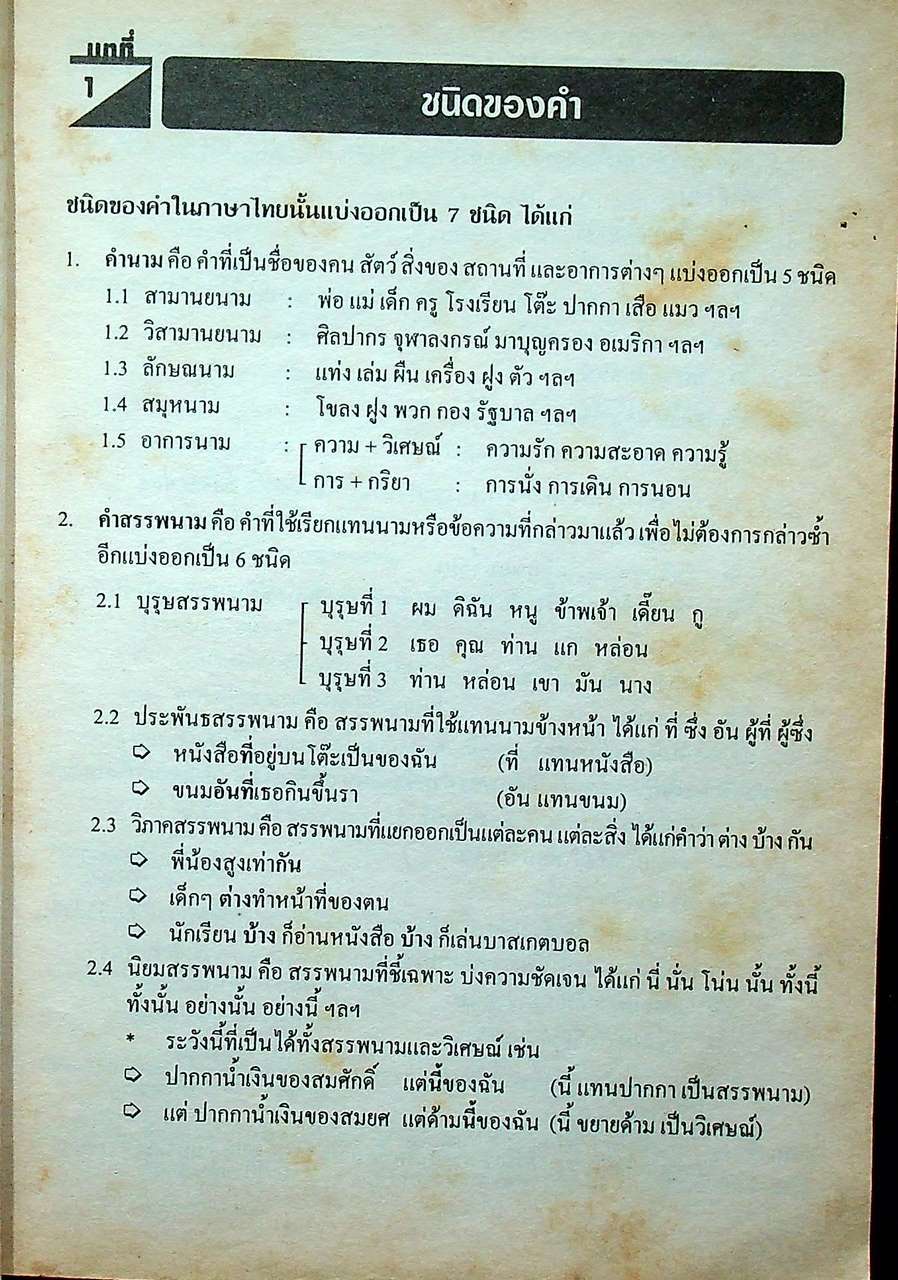 บทที่
1
ชนิดของคำ
ชนิดของคำในภาษาไทยนั้นแบ่งออกเป็น 7 ชนิด ได้แก่
1. คำนาม คือ คำที่เป็นชื่อของคน สัตว์ สิ่งของ สถานที่ และอาการต่างๆ แบ่งออกเป็น 5 ชนิด
1.1 สามานยนาม : พ่อ แม่ เด็ก ครู โรงเรียน โต๊ะ ปากกา เสือ แมว ฯลฯ
1.2 วิสามานยนาม : ศิลปากร จุฬาลงกรณ์ มาบุญครอง อเมริกา ฯลฯ
1.3 ลักษณนาม : แท่ง เล่ม ผืน เครื่อง ฝูง ตัว ฯลฯ
1.4 สมุหนาม : โขลง ฝูง พวก กอง รัฐบาล ฯลฯ
1.5 อาการนาม : ความ + วิเศษณ์ : ความรัก ความสะอาด ความรู้
การ + กริยา : การนั่ง การเดิน การนอน
2. คำสรรพนาม คือ คำที่ใช้เรียกแทนนามหรือข้อความที่กล่าวมาแล้ว เพื่อไม่ต้องการกล่าวซ้ำ
อีกแบ่งออกเป็น 6 ชนิด
2.1 บุรุษสรรพนาม บุรุษที่ 1 ผม ดิฉัน หนู ข้าพเจ้า เดี๊ยน กู
บุรุษที่ 2 เธอ คุณ ท่าน แก หล่อน
บุรุษที่ 3 ท่าน หล่อน เขา มัน นาง
2.2 ประพันธสรรพนาม คือ สรรพนามที่ใช้แทนนามข้างหน้า ได้แก่ ที่ ซึ่ง อัน ผู้ที่ ผู้ซึ่ง
➩ หนังสือที่อยู่บนโต๊ะเป็นของฉัน (ที่ แทนหนังสือ)
➩ ขนมอันที่เธอกินขึ้นรา (อัน แทนขนม)
2.3 วิภาคสรรพนาม คือ สรรพนามที่แยกออกเป็นแต่ละคน แต่ละสิ่ง ได้แก่คำว่า ต่าง บ้าง กัน
➩ พี่น้องสูงเท่ากัน
➩ เด็กๆ ต่างทำหน้าที่ของตน
➩ นักเรียน บ้าง ก็อ่านหนังสือ บ้าง ก็เล่นบาสเกตบอล
2.4 นิยมสรรพนาม คือ สรรพนามที่ชี้เฉพาะ บ่งความชัดเจน ได้แก่ นี่ นั่น โน่น นั้น ทั้งนี้
ทั้งนั้น อย่างนั้น อย่างนี้ ฯลฯ
* ระวังนี้ที่เป็นได้ทั้งสรรพนามและวิเศษณ์ เช่น
➩ ปากกาน้ำเงินของสมศักดิ์ แต่นี้ของฉัน (นี้ แทนปากกา เป็นสรรพนาม)
➩ แต่ ปากกาน้ำเงินของสมยศ แต่ด้ามนี้ของฉัน (นี้ ขยายด้าม เป็นวิเศษณ์)